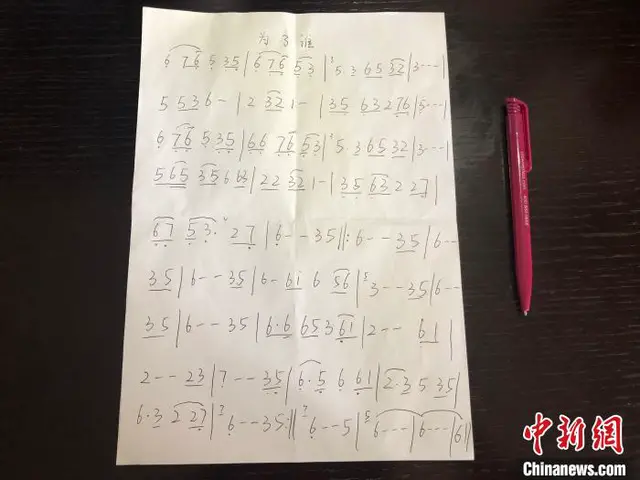 为了谁
6 76 5 35 | 6 76 5 3 | 5 3 65 32 | 3 - - - |
5 5 3 6 - | 2 32 1 - | 35 63 2 76 | 5 - - - |
6 76 5 35 | 66 76 53 | 5 3 65 32 | 3 - - - |
5 65 35 6 63 | 22 32 1 - | 35 63 2 27 |
67 53· 27 | 6 - - 35 ‖: 6 - - 35 | 6 - -
35 | 6 - - 35 | 6 - 61 6 56 | 5 3 - - 35 | 6 - -
35 | 6 - - 35 | 6·6 65 3 61 | 2 - - 61 |
2 - - 23 | 7 - - 35 | 6·5 6 61 | 2·3 5 35 |
6·3 2 27 | 7 6 - - 35 :‖ 7 6 - - 5 | 5 6 - - - | 6 - - - | 6 ‖
中新网
Chinanews.com